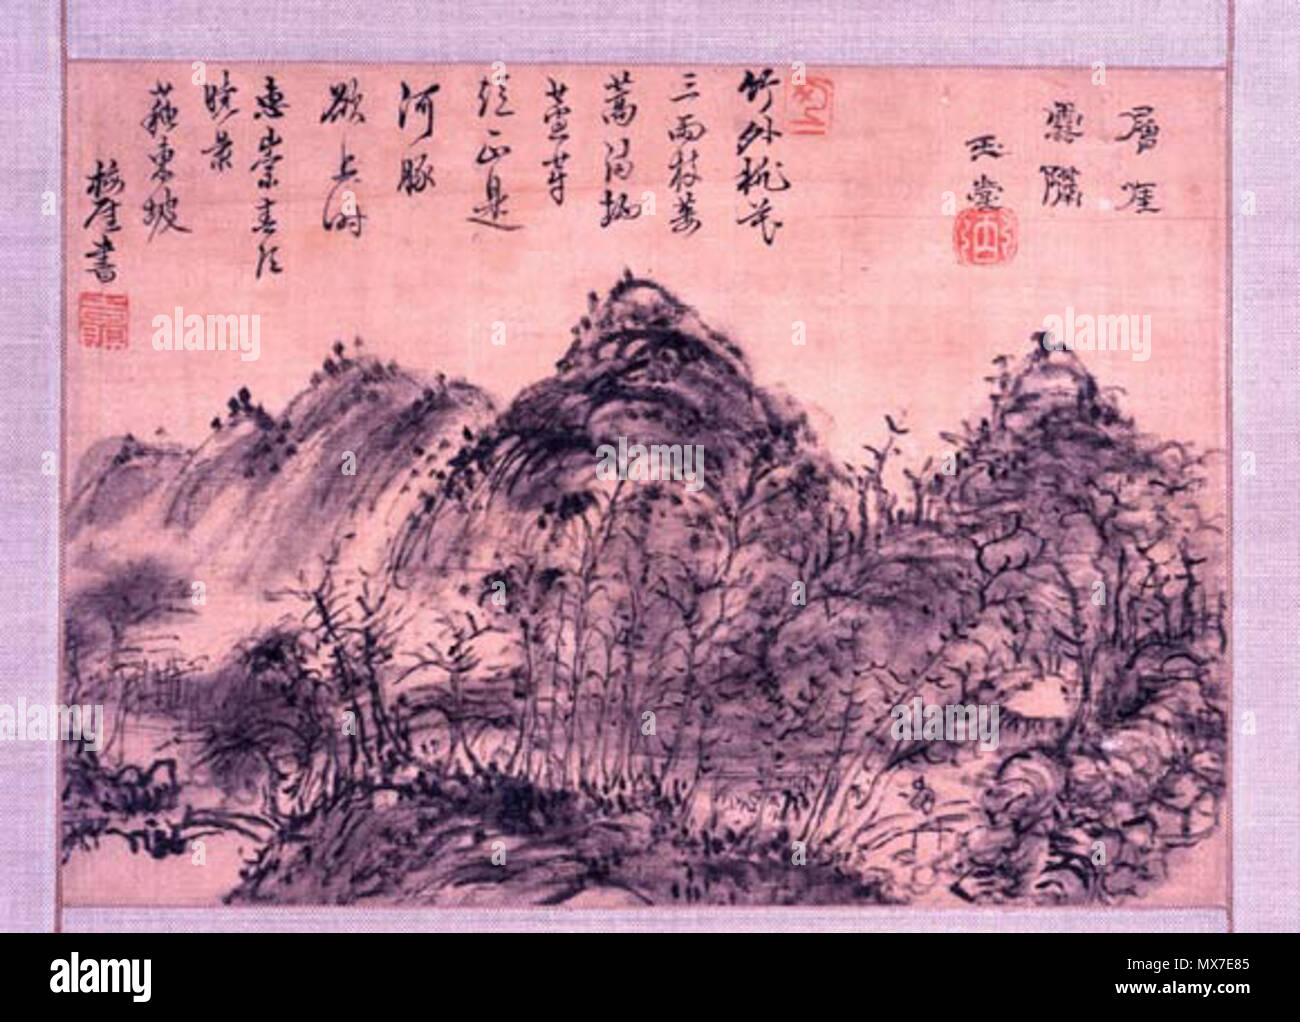 層崖
玉堂
竹外桃花
三兩枝蔞
蒿滿地
蘆芽
短正是
河豚
欲上時
惠崇春江
曉景
蘇東坡
梅厓書
alamy
alamy
alamy
alamy
alamy
alamy
Image ID: MX7E85
www.alamy.com